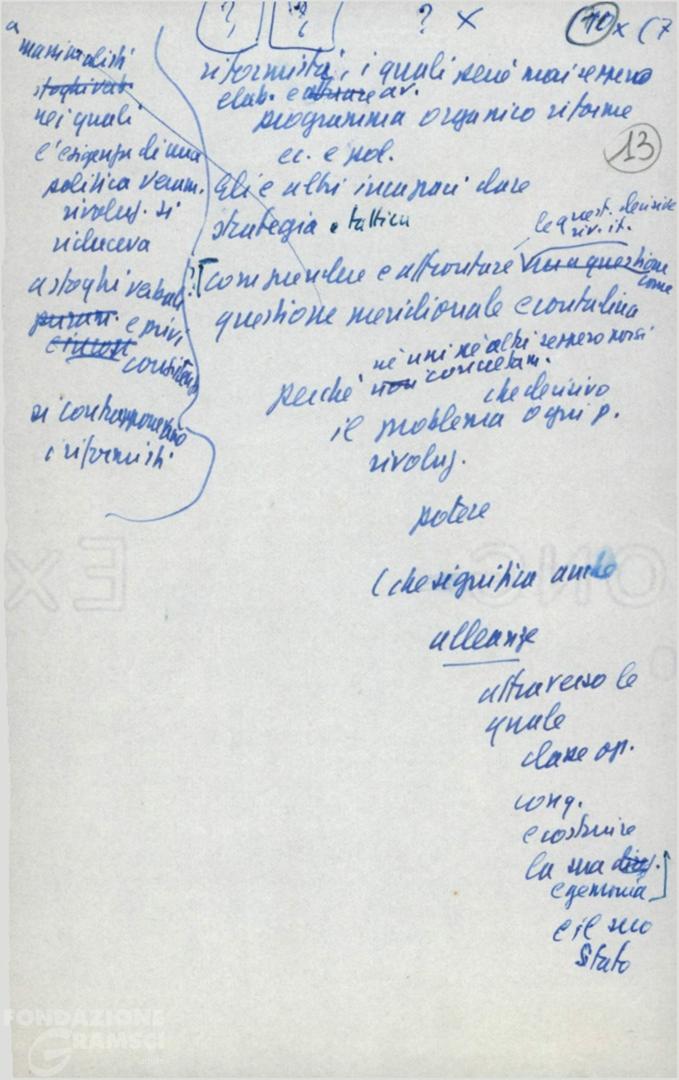 ? ? ? x 10 x (7
13
a
massimalisti
sfoghi verb.
nei quali
l'esigenza di una
politica veram.
rivoluz. si
riduceva
a sfoghi verbali
puram. e privi
consistenza
si contrapponevano
i riformisti
riformisti, i quali però mai seppero
elab. e attuare av.
programma organico riforme
ec. e pol.
Gli e altri incapaci dare
strategia e tattica
le quest. decisive
riv. it.
?[ comprendere e affrontare una questione
come
questione meridionale e contadina
né uni né altri seppero porsi
perché non concretam.
che decisivo
il problema ogni p.
rivoluz.
potere
(che significa anche
alleanze
attraverso le
quale
classe op.
conq.
e costruire
la sua
egemonia
e il suo
Stato
FONDAZIONE
GRAMSCI